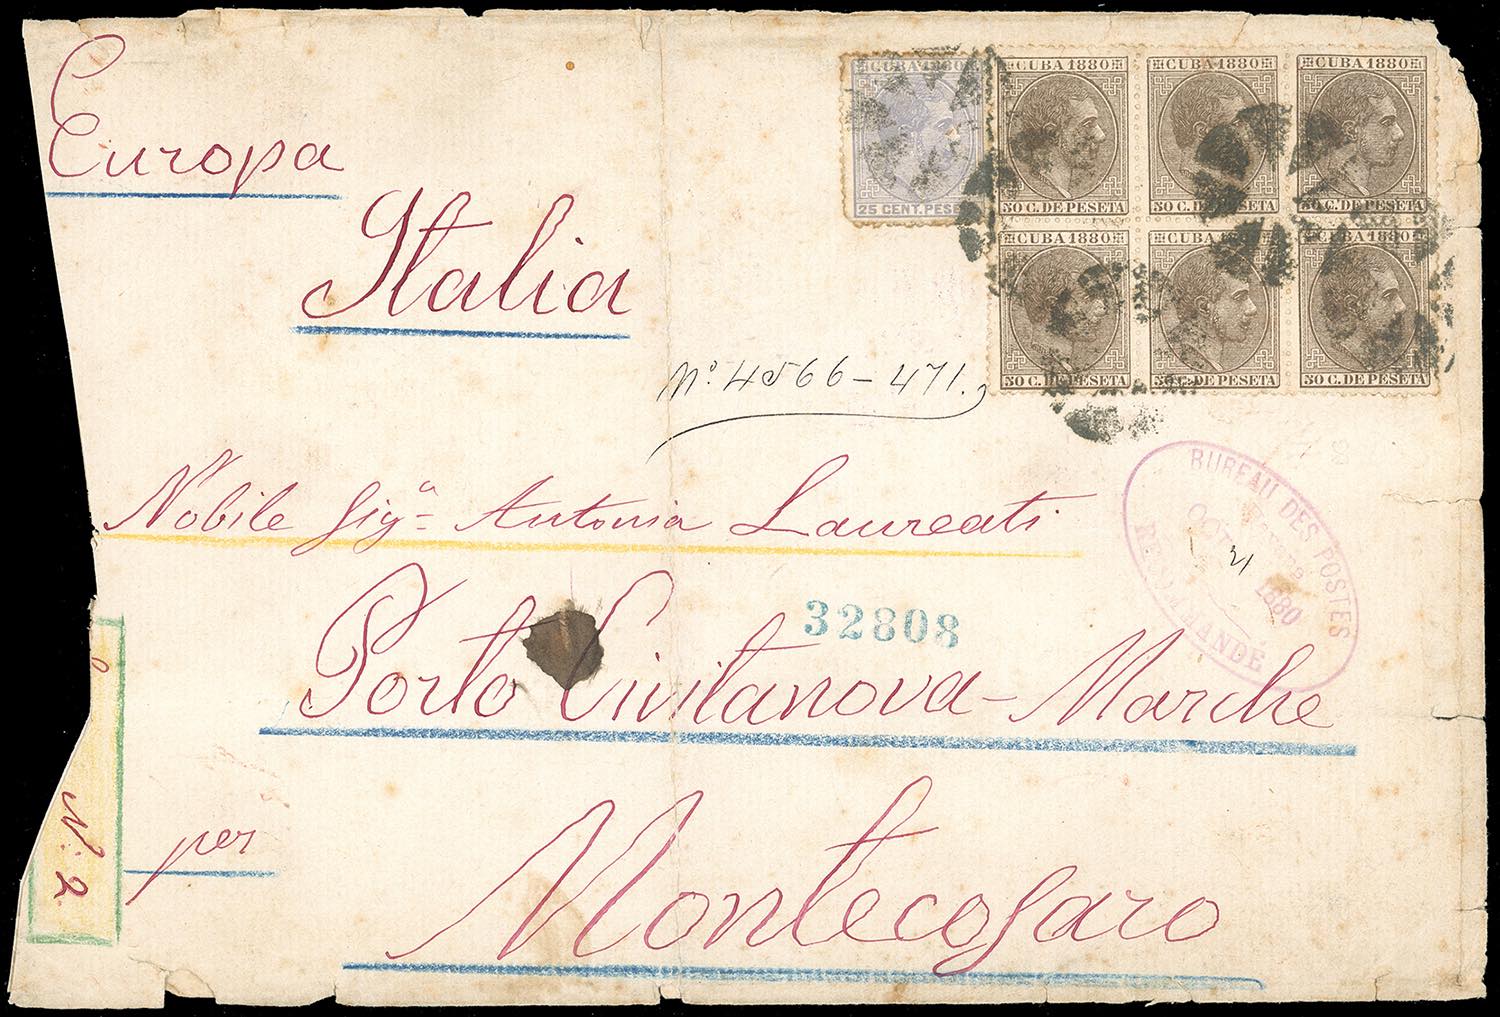 Europa
Italia
CUBA 1880
25 CENT. PESE
CUBA 1880
50 C. DE PESETA
CUBA 1880
50 C. DE PESETA
CUBA 1880
50 C. DE PESETA
CUBA 1880
50 C. DE PESETA
CUBA 1880
50 C. DE PESETA
CUBA 1880
50 C. DE PESETA
No. 4566-471.
Nobile Sigª Antonia Laureati
BUREAU DES POSTES
OCT 21 1880
RECOMMANDÉ
32808
Porto Civitanova-Marche
N: 2
per
Montecosaro